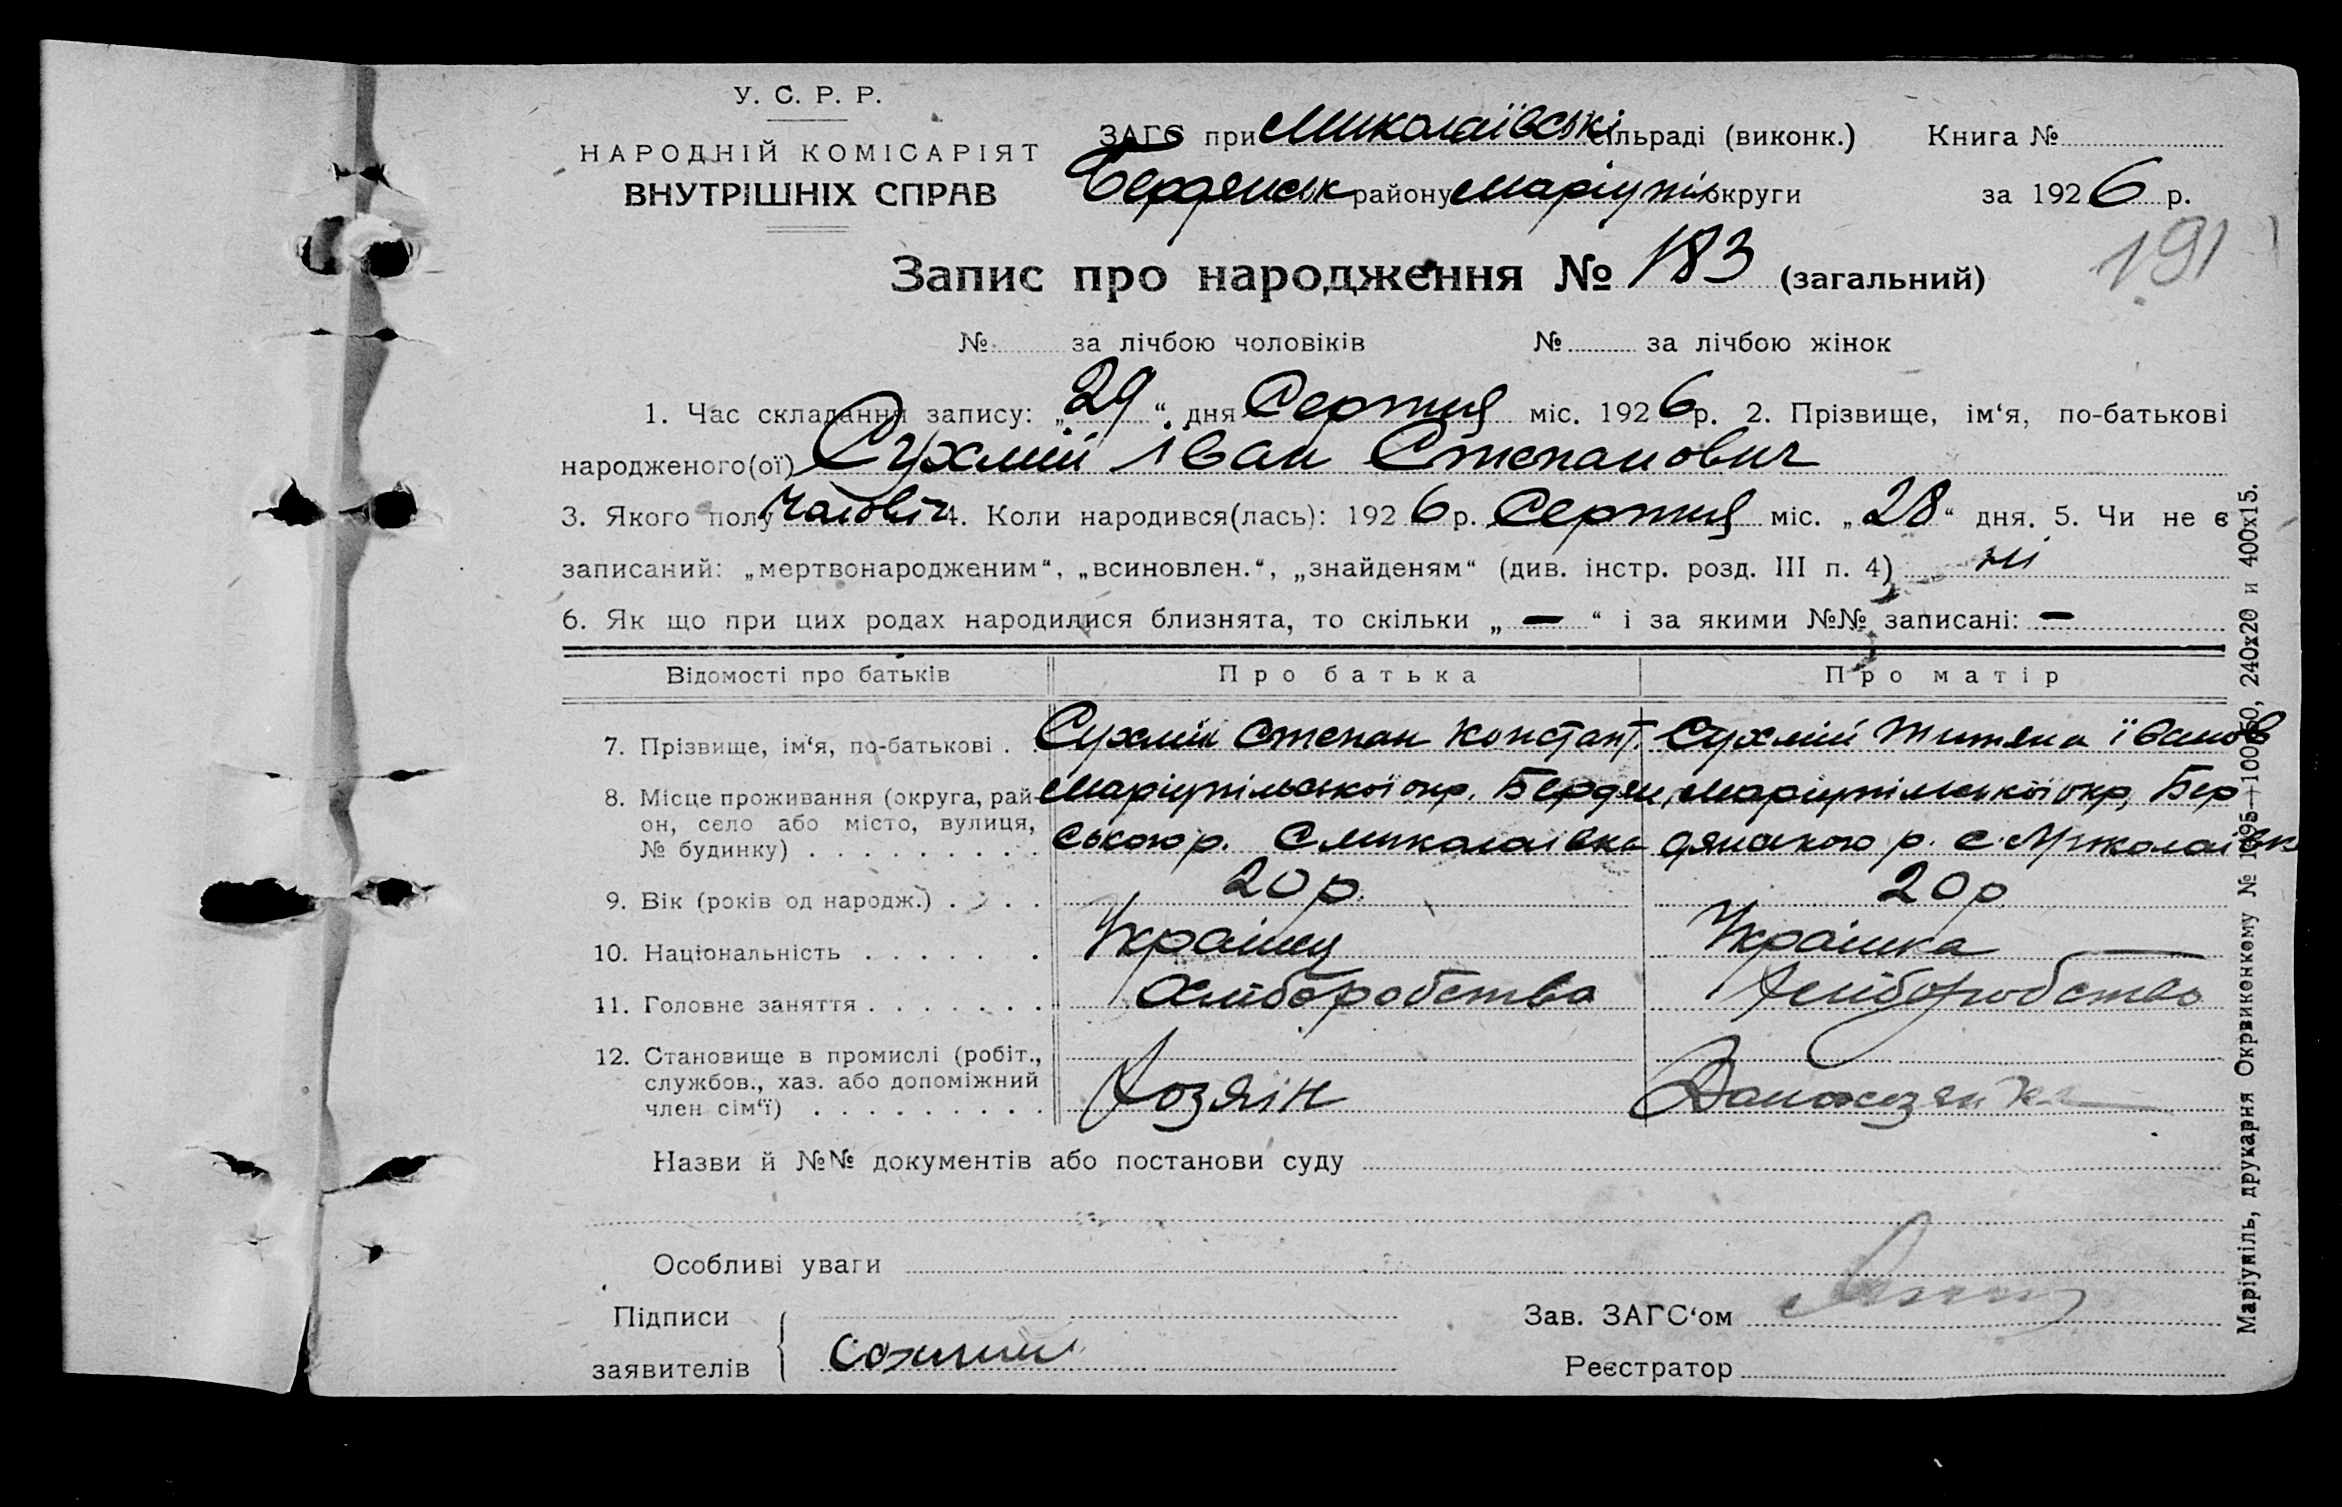 У. С. Р. Р.
НАРОДНІЙ КОМІСАРІЯТ
ВНУТРІШНІХ СПРАВ
ЗАГС при Миколаївські сільраді (виконк.) Книга №
Бердянськ району Маріупіль округи за 1926 р.
191
Запис про народження № 183 (загальний)
№ за лічбою чоловіків № за лічбою жінок
1. Час складання запису: „29“ дня Серпня міс. 1926 р. 2. Прізвище, ім‘я, по-батькові
народженого(ої) Сухмій іван Степанович
3. Якого полу Чаловіч 4. Коли народився(лась): 1926 р. Серпня міс. „28“ дня. 5. Чи не є
записаний: „мертвонародженим“, „всиновлен.“, „знайденям“ (див. інстр. розд. III п. 4) ні
6. Як що при цих родах народилися близнята, то скільки „ — “ і за якими №№ записані: —
Відомості про батьків Про батька Про матір
7. Прізвище, ім‘я, по-батькові . Сухмій Степан Констант. Сухмій Титяна іванов
8. Місце проживання (округа, рай- Маріупільської окр. Бердян Маріупільської окр, Бер
он, село або місто, вулиця,
№ будинку) . . . . . . . . . ського р. С Миколаівка дянського р. с. Миколаівк
9. Вік (років од народж.) . . . . 20 р. 20 р
10. Національність . . . . . . Украінец Украінка
11. Головне заняття . . . . . . . Хлібо́робства Хліборобство
12. Становище в промислі (робіт.,
службов., хаз. або допоміжний
член сім‘ї) . . . . . . . . . Хозяін Домохозяйка
Назви й №№ документів або постанови суду
Особливі уваги
Підписи
заявителів
Зав. ЗАГС‘ом
Реєстратор
Маріупіль, друкарня Окрвиконкому № 1195—100×50, 240х20 и 400х15.